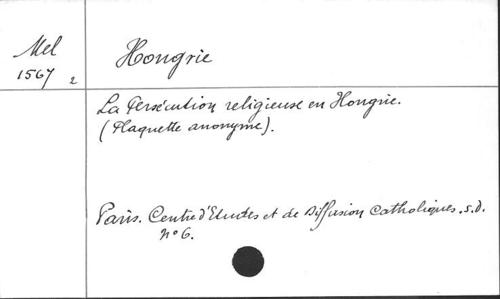 Mel
1567 2
Hongrie
La Persécution religieuse en Hongrie.
(Plaquette anonyme).
Paris. Centre d'Etudes et de Diffusion Catholiques. s.d.
N° 6.